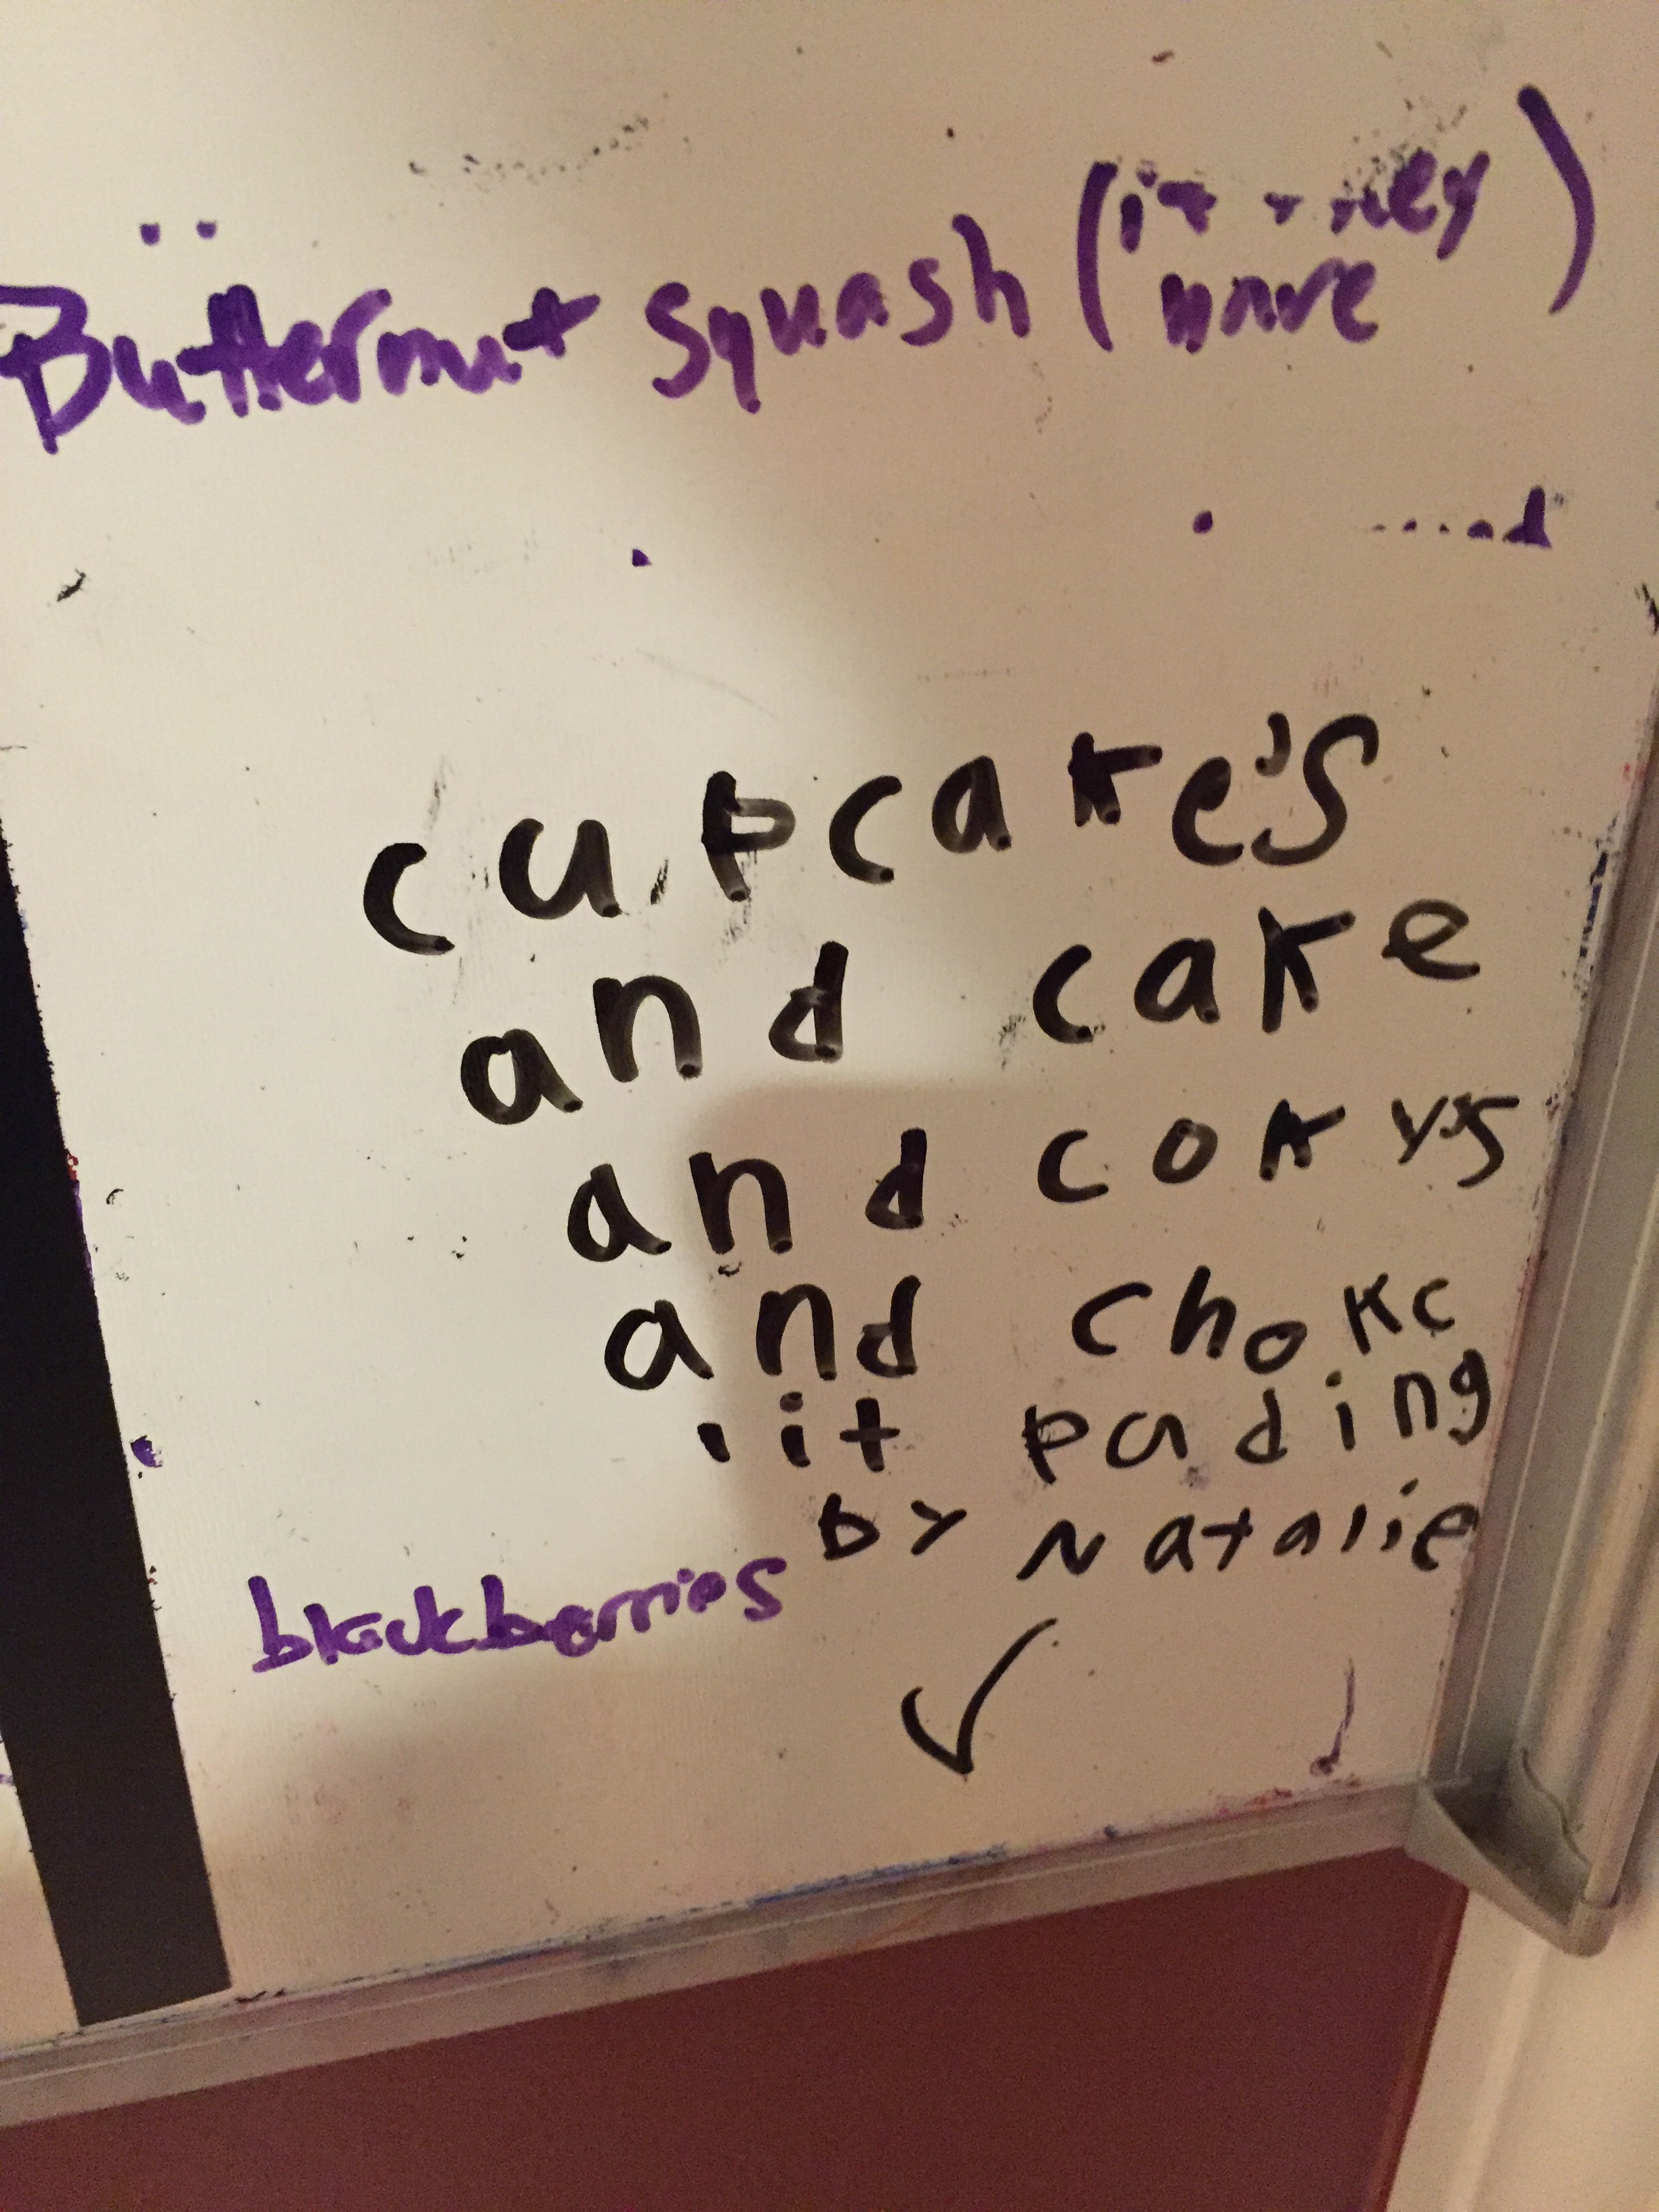 Butternut squash (if they
have)
cupcake's
and cake
and cokys
and chokc
lit pading
by Natalie
blackberries